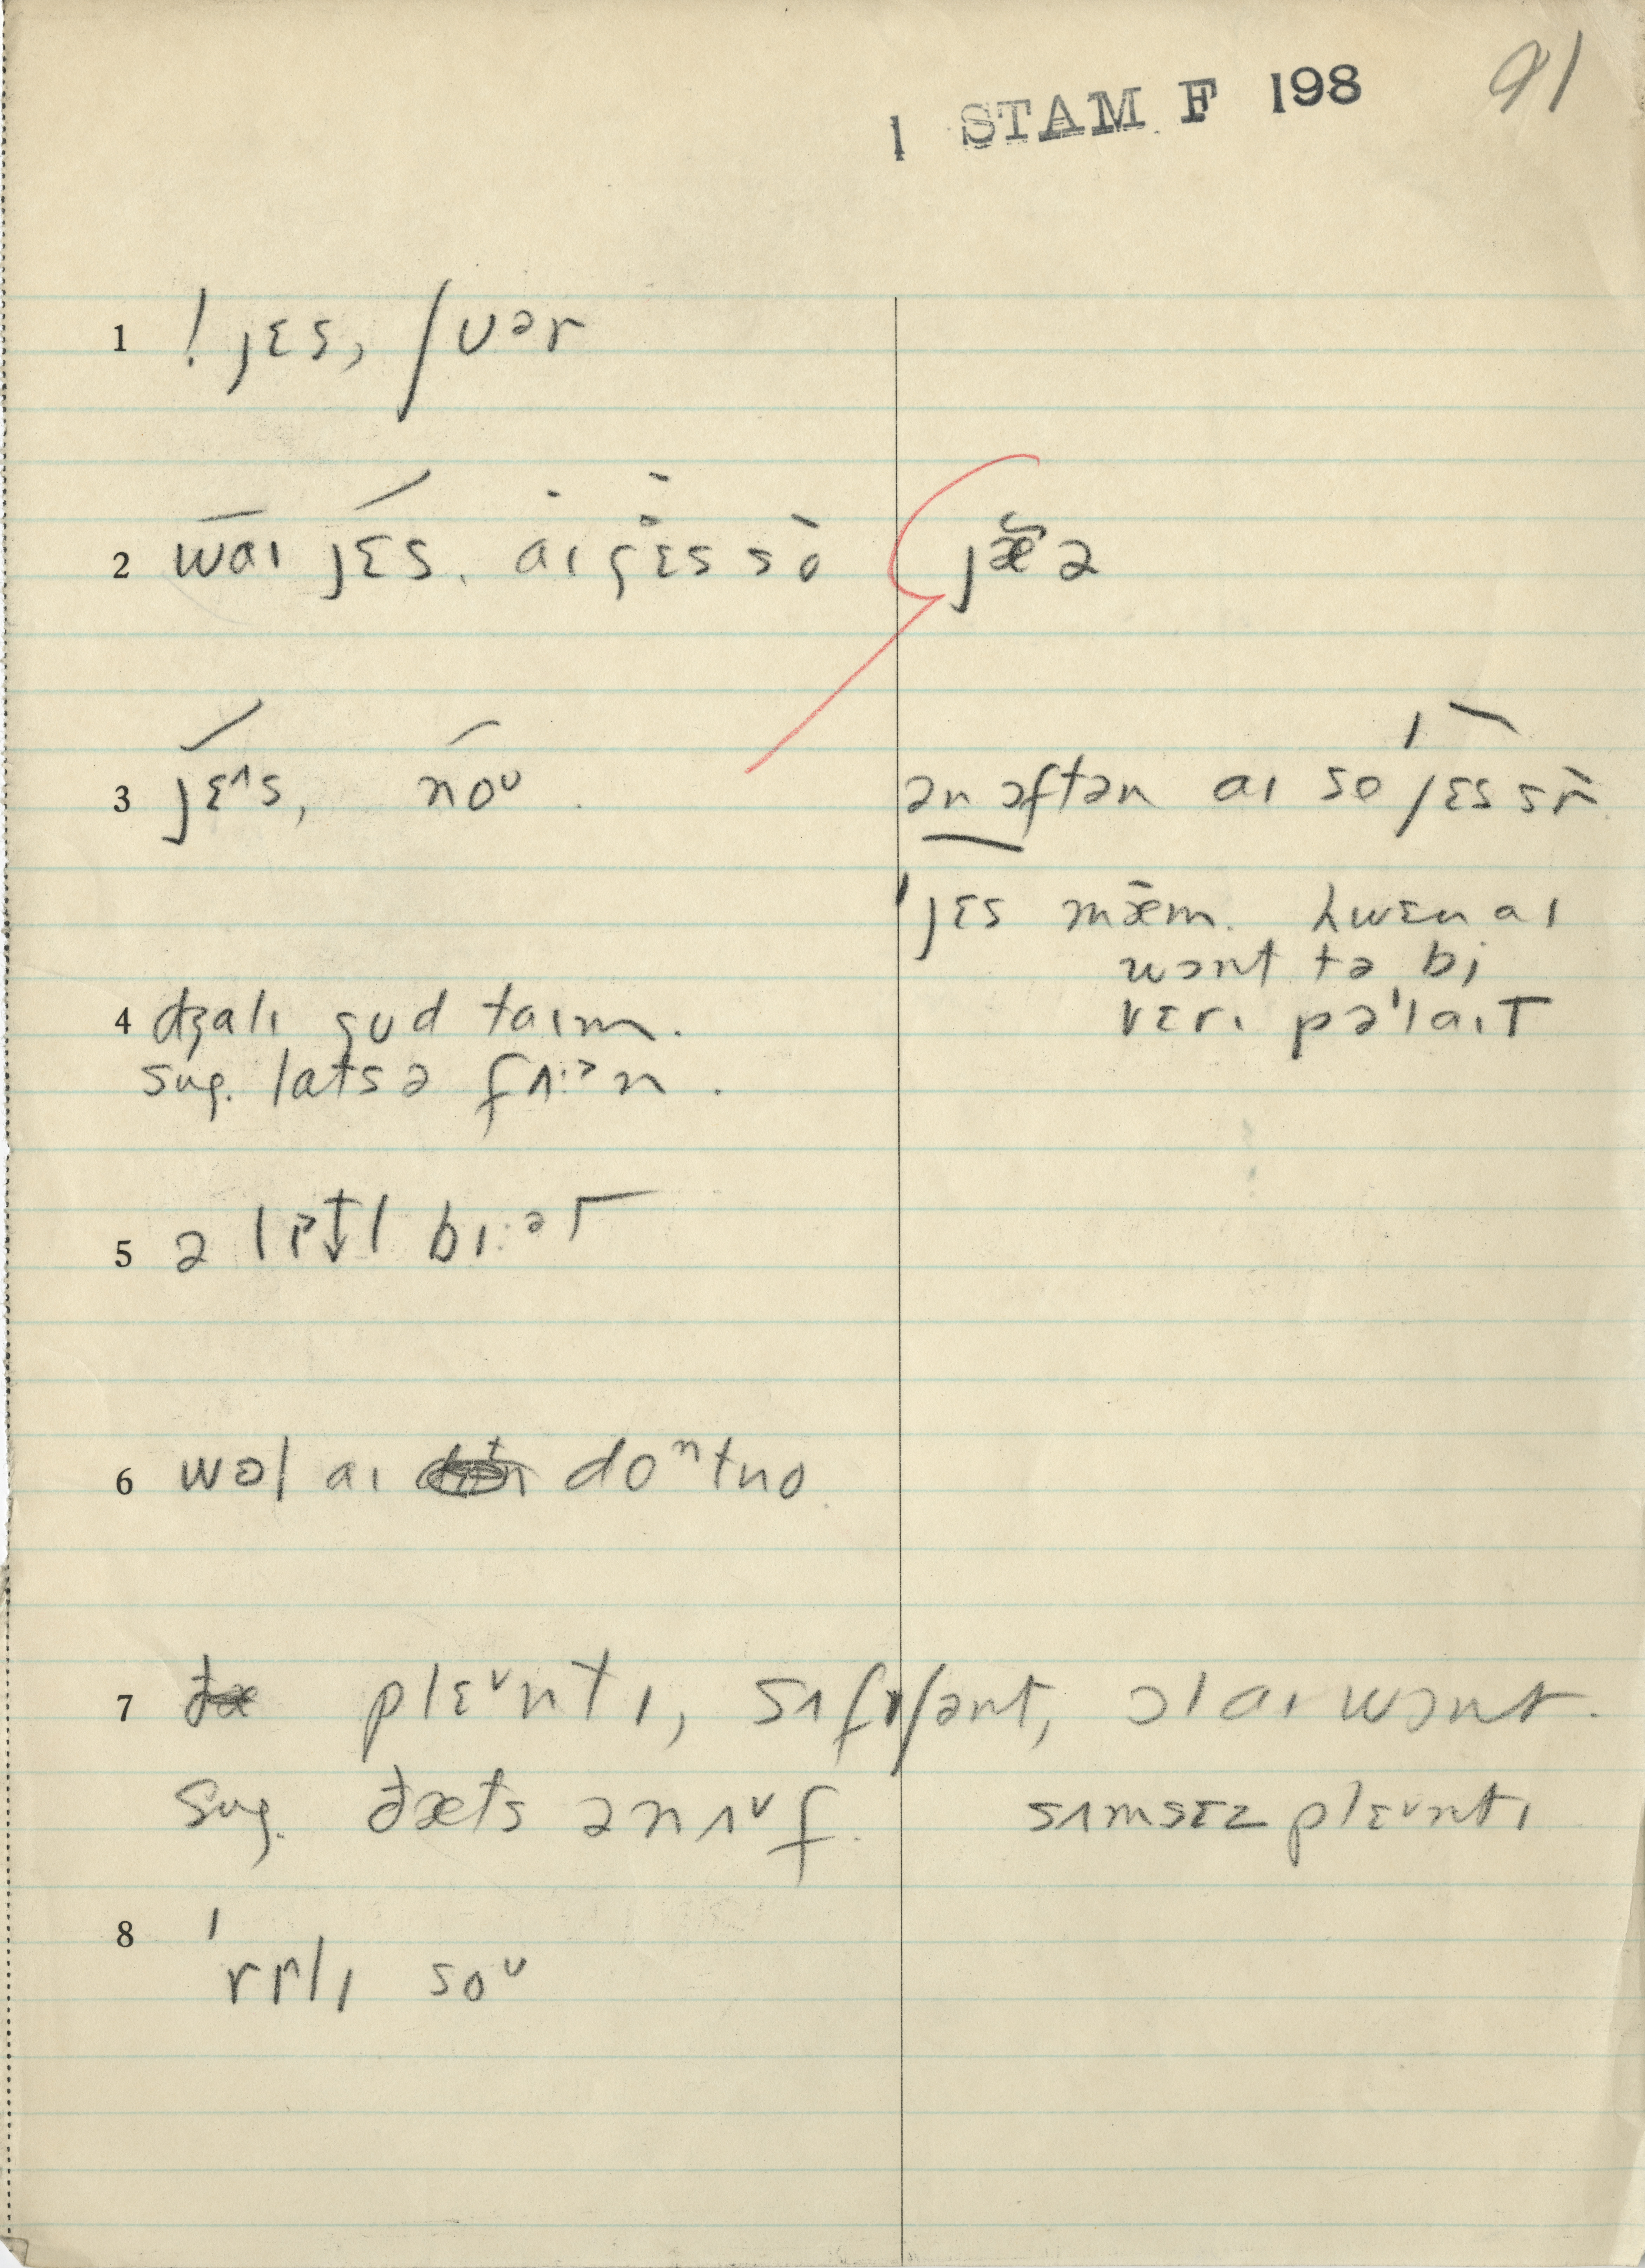 1 STAM F 198 91
1 ! jɛs, ʃʊər
2 waɪ jɛs. aɪ gɛs so jæ̆ə
3 jɛˆs, noᶷ. ən ɔftən aɪ so jɛs sr̄
'jɛs mǣm. hwɛn aɪ
wɔnt tə bi
vɛrɪ pə'laɪt
4 dʒalɪ gud taɪm.
sug. lats ə fʌ:ᵊn.
5 ə lɪtl bɪ:ət
6 wəl aɪ doⁿtno
7 plɛᶸntɪ, sʌfɪʃənt, ɔl aɪ wɔnt.
sug. ðæts ənʌᶸf. sʌmsɛz plɛᶸntɪ
8 'rɪlɪ soᶷ